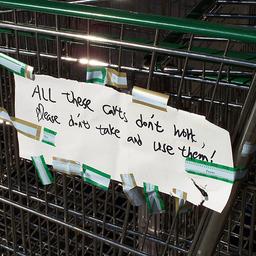 ALL these carts don't work,
Please don't take and use them!